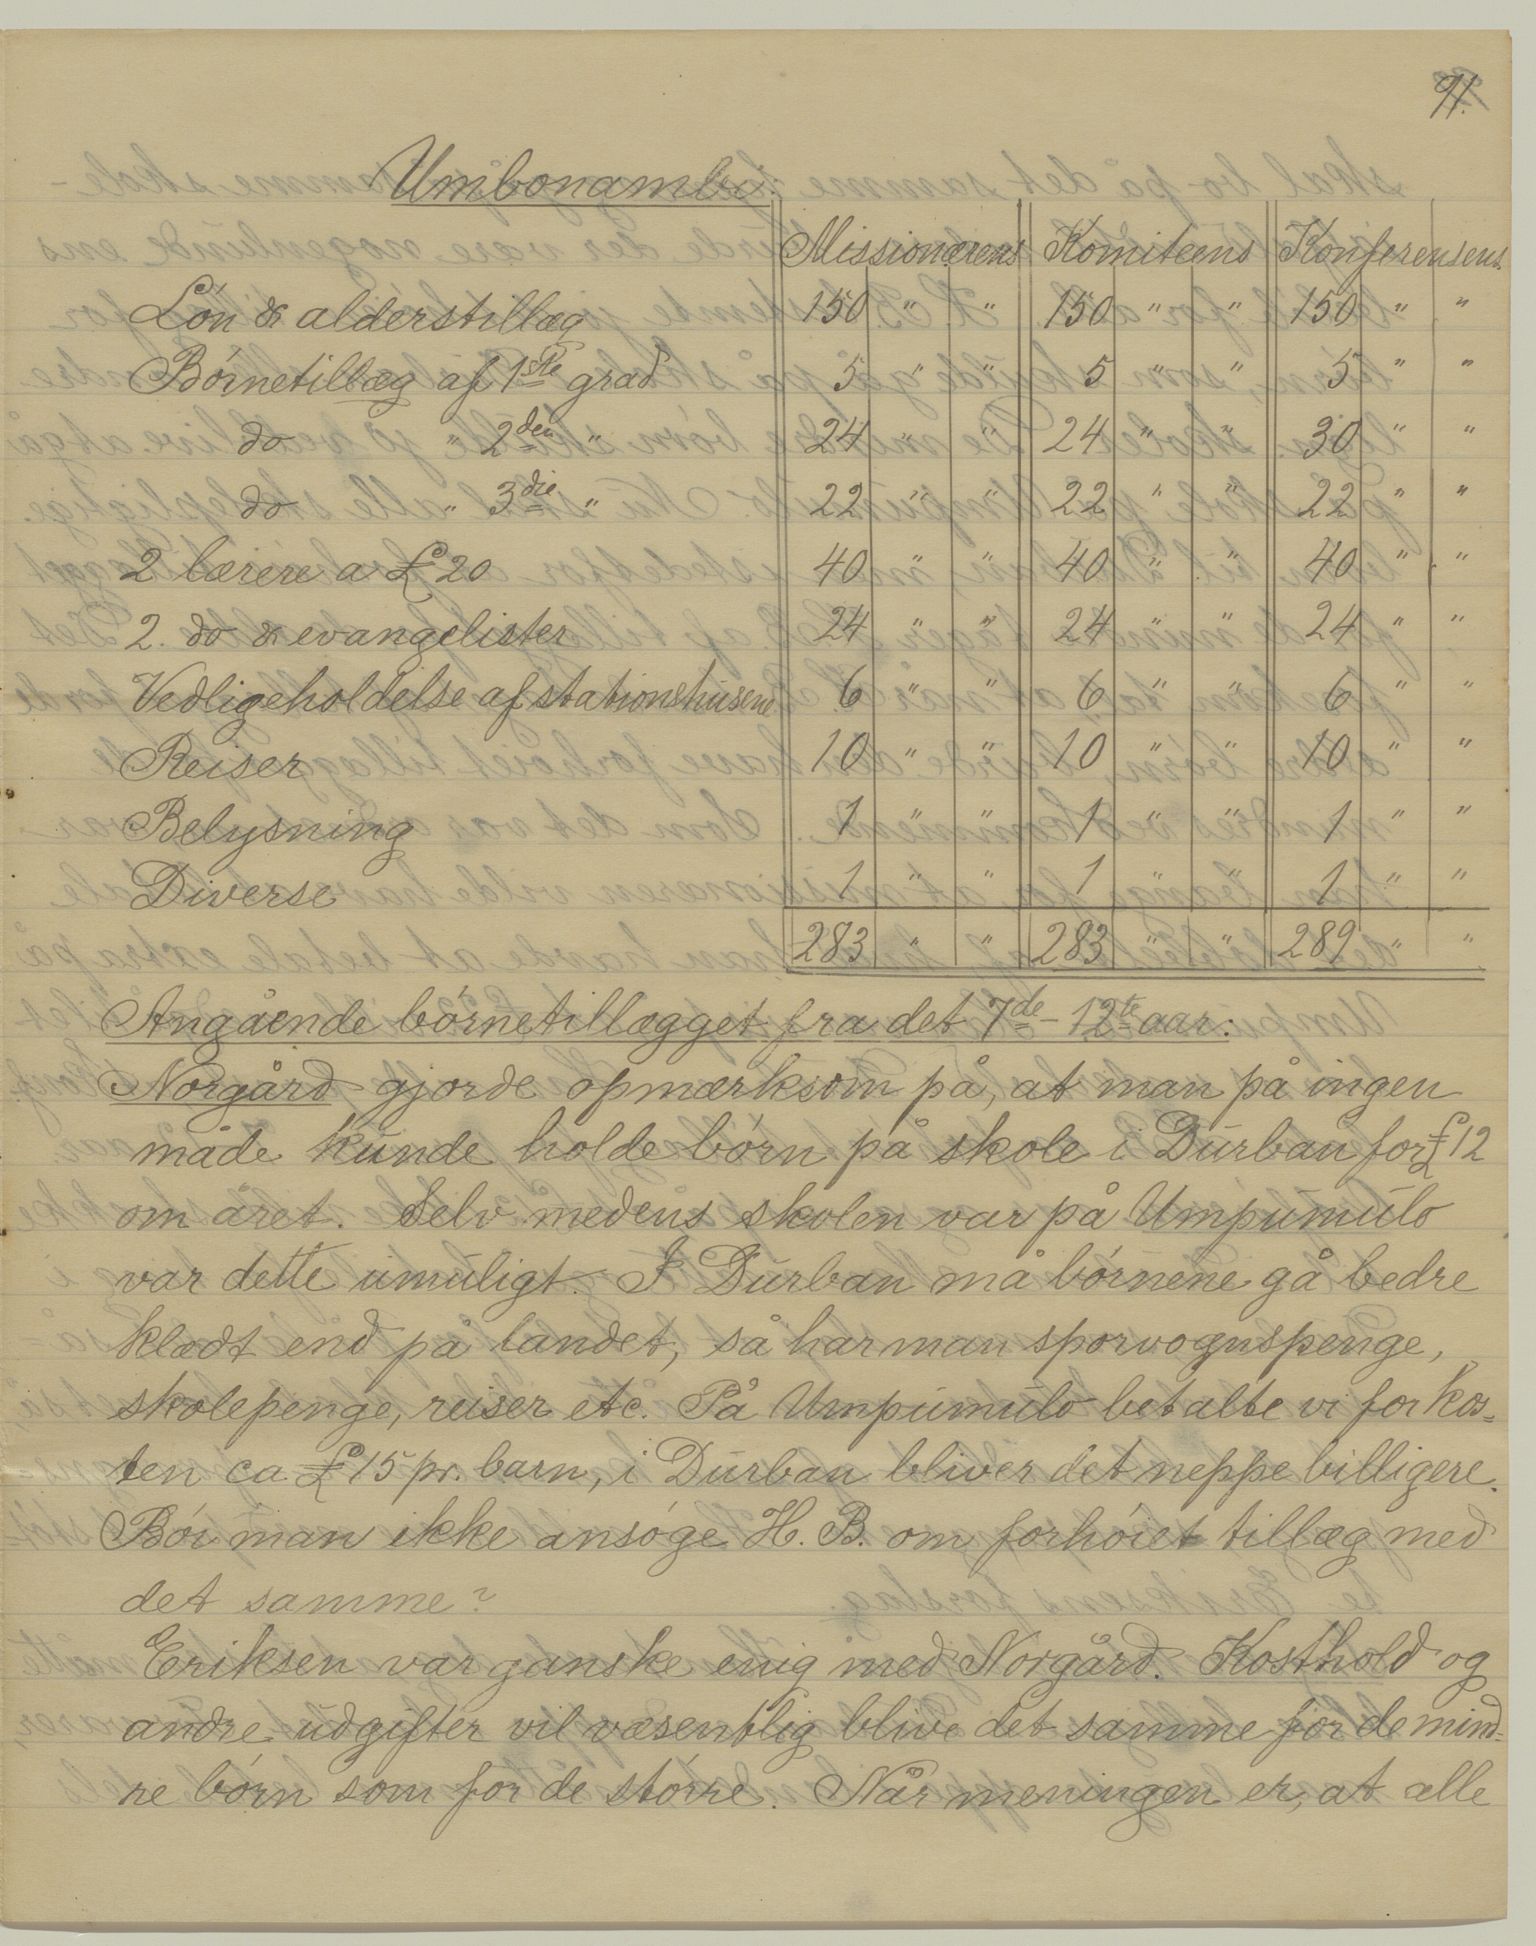 91.
Umbonambi.
Missionærens Komiteens Konferensens
Lón & alderstillæg 150 " " 150 " " 150 " "
Börnetillæg af 1ste grad 5 " " 5 " " 5 " "
do " 2den " 24 " " 24 " " 30 " "
do " 3die " 22 " " 22 " " 22 " "
2 lærere a £20 40 " " 40 " " 40 " "
2. do & evangelister 24 " " 24 " " 24 " "
Vedligeholdelse af stationshusene 6 " " 6 " " 6 " "
Reiser 10 " " 10 " " 10 " "
Belysning 1 " " 1 " " 1 " "
Diverse 1 " " 1 " " 1 " "
283 " " 283 " " 289 " "
Angående börnetillægget fra det 7de - 12te aar:
Norgård gjorde opmærksom på, at man på ingen
måde kunde holde börn på skole i Durban for £12
om året. Selv medens skolen var på Umpumulo
var dette umuligt. I Durban må börnene gå bedre
klædt end på landet, så har man sporvognspenge,
skolepenge, reiser etc. På Umpumulo betalte vi for kos=
ten ca £15 pr. barn, i Durban bliver det neppe billigere.
Bör man ikke ansöge H. B. om forhöiet tillæg med
det samme?
Eriksen var ganske enig med Norgård. Kosthold og
andre udgifter vil væsentlig blive det samme for de mind=
re börn som for de större. Når meningen er, at alle